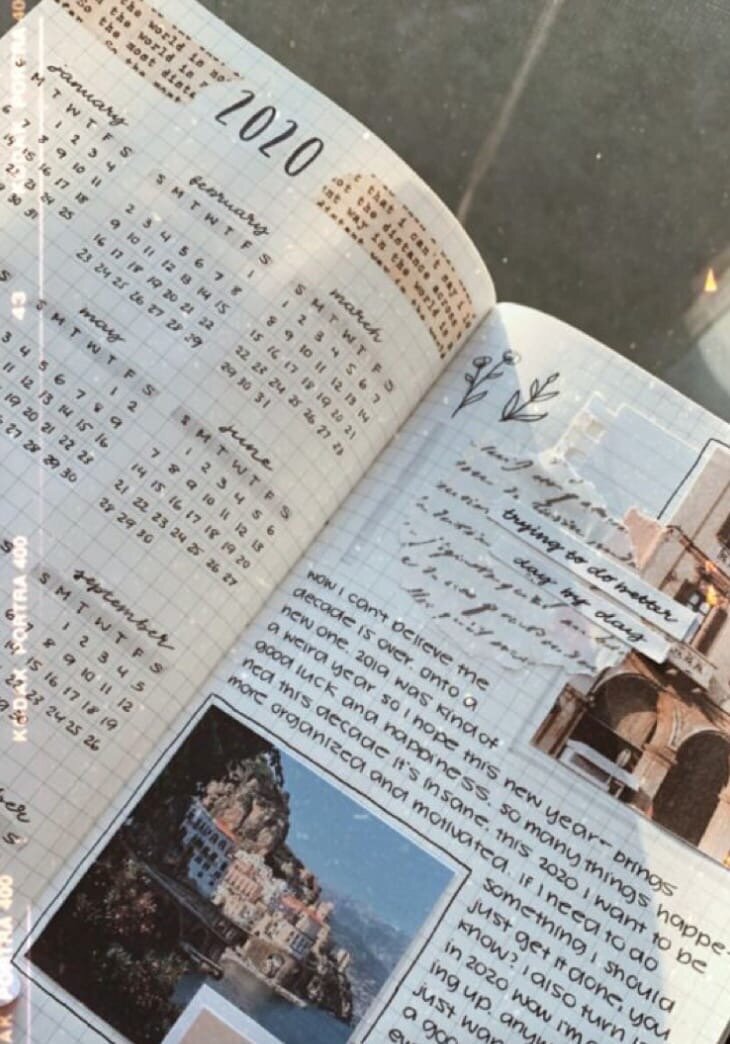 the world is so
So the world in
the most dista
2020
january
M T W T F S
1 2 3 4
8 9 10 11
14 15 16 17 18
22 23 24 25
30 31
february
S M T W T F S
1
2 3 4 5 6 7 8
9 10 11 12 13 14 15
16 17 18 19 20 21 22
23 24 25 26 27 28 29
that I can't say
not the distance across
way in the world is
march
S M T W T F S
1 2 3 4 5 6 7
8 9 10 11 12 13 14
15 16 17 18 19 20 21
22 23 24 25 26 27 28
29 30 31
may
S M T W T F S
1 2
3 4 5 6 7 8 9
11 12 13 14 15 16
19 20 21 22 23
27 28 29 30
june
S M T W T F S
1 2 3 4 5 6
7 8 9 10 11 12 13
14 15 16 17 18 19 20
21 22 23 24 25 26 27
28 29 30
september
S M T W T F S
1 2 3 4 5
7 8 9 10 11 12
15 16 17 18 19
23 24 25 26
ber
S
trying to do better
day my day
now I can't believe the
decade is over. onto a
new one. 2019 was kind of
a weird year so I hope this new year brings
good luck and happiness. so many things happe-
ned this decade it's insane. this 2020 I want to be
more organized and motivated. If I need to do
something I should
just get it done, you
know? I also turn
in 2020 wow I'm
ing up. anyw
just wan
a goo
KODAK PORTRA 400
43
KODAK PORTRA 400
PORTRA 400